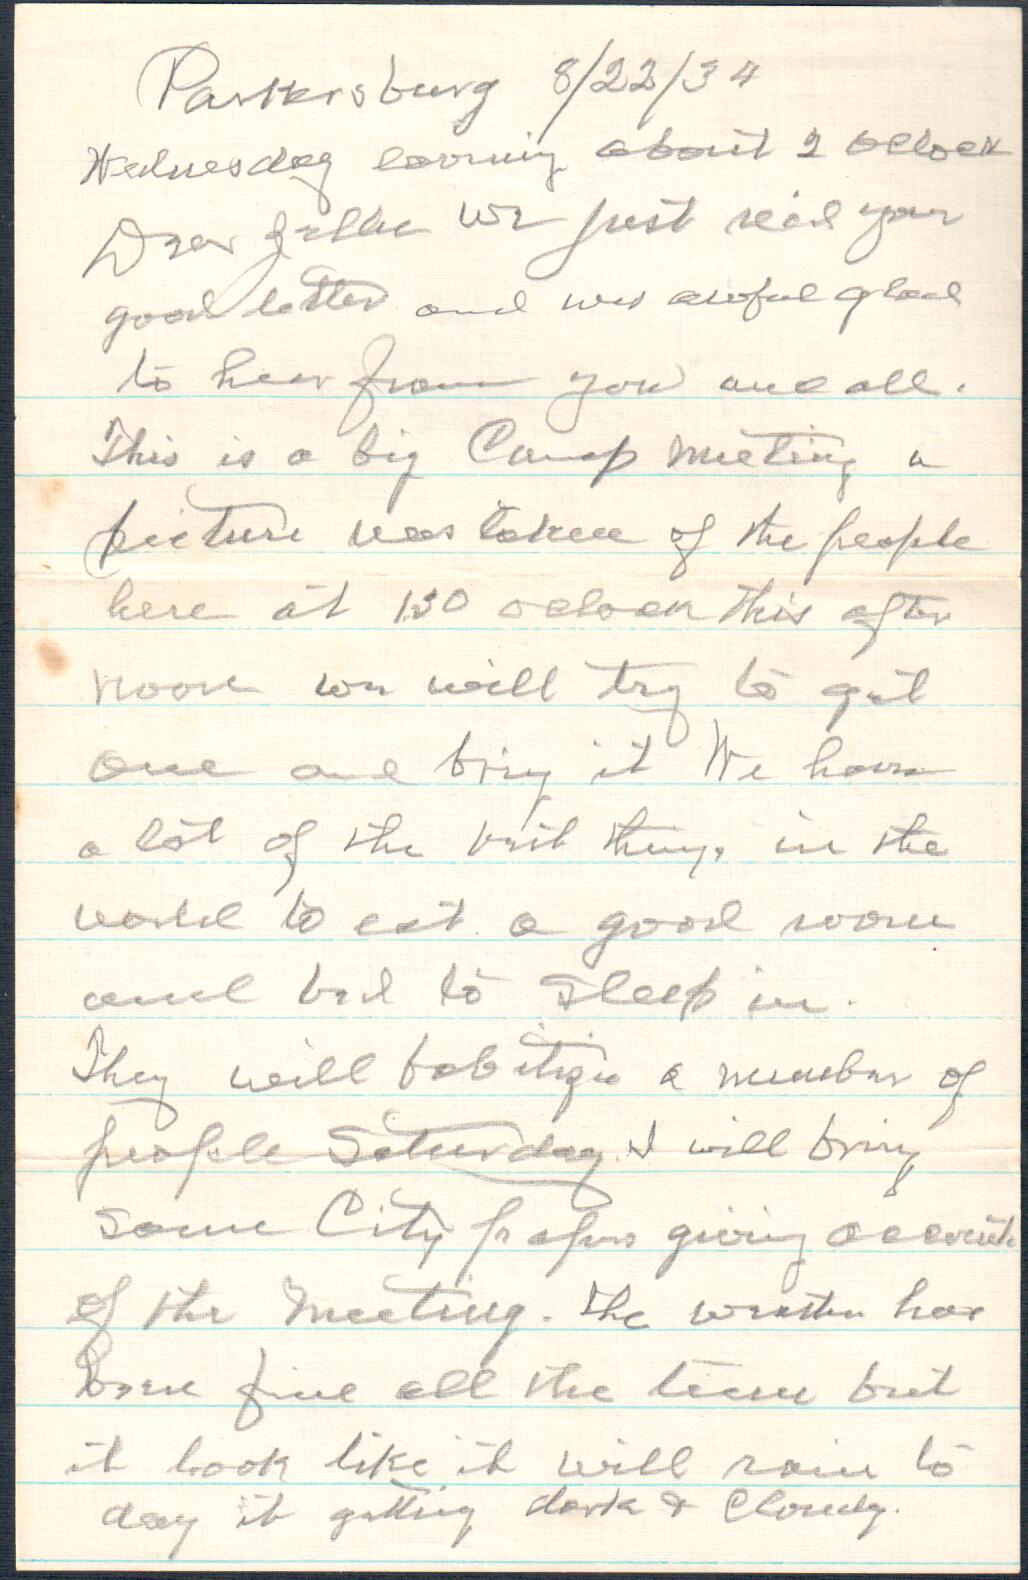 Parkersburg 8/22/34
Wednesday about 2 oclock
Dear we just recd your
good letter and was awful glad
to hear from you and all.
This is a big Camp Meeting a
picture was taken of the people
here at 130 oclock this after
noon we will try to get
one and bring it We have
a lot of the best things in the
world to eat. a good room
and bed to Sleep in.
They will babitize a number of
people Saturday. I will bring
some City papers giving
of the Meeting. The has
been fine all the time but
it look like it will rain to
day it getting dark & Cloudy.